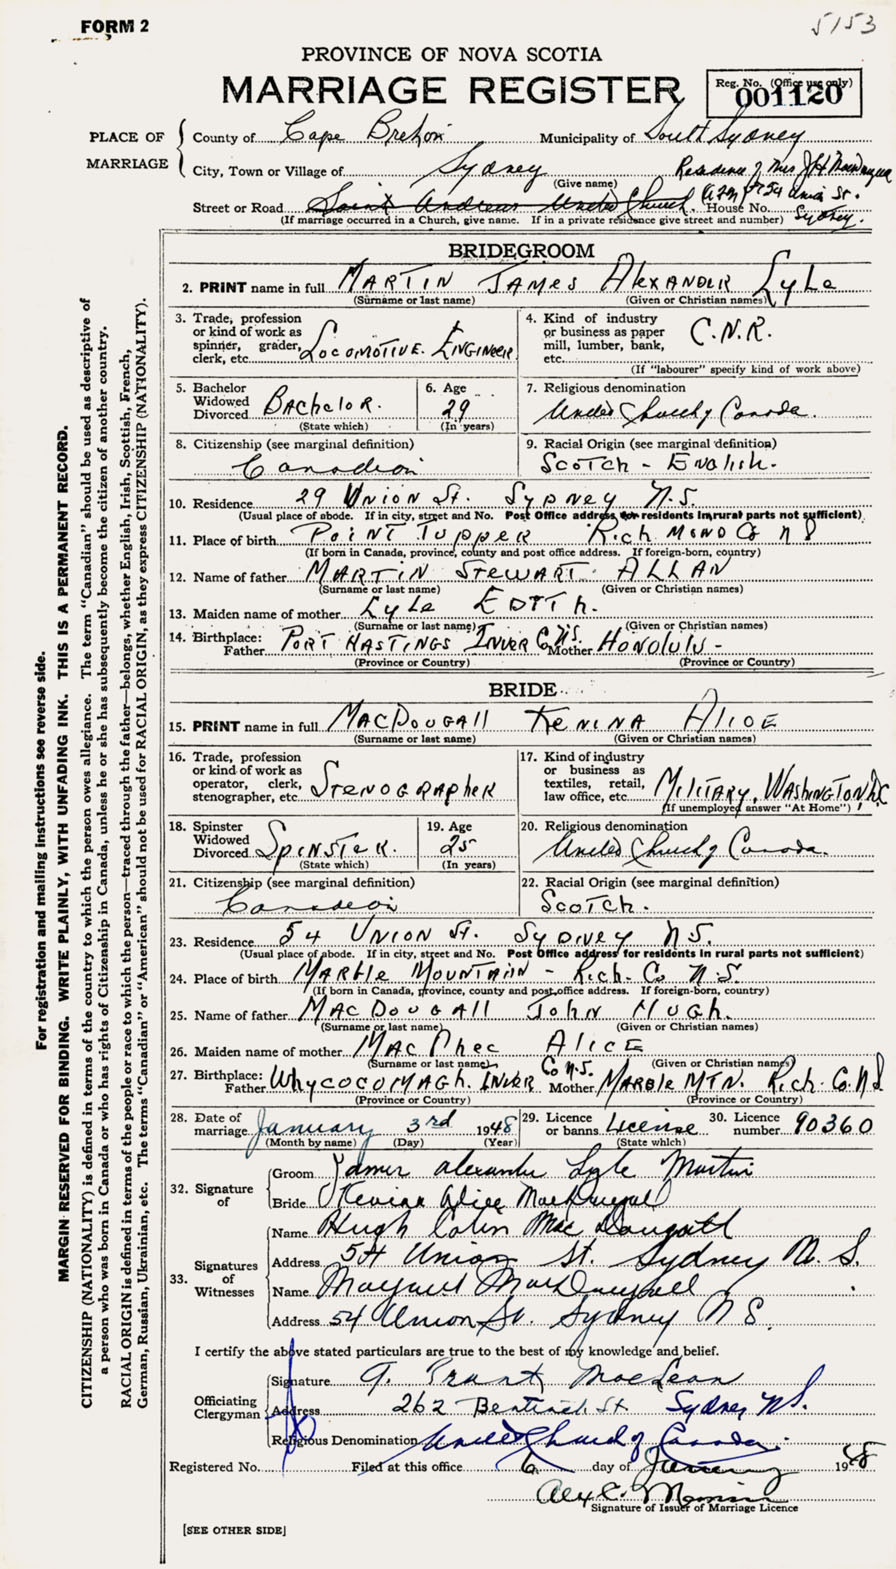 FORM 2
5153
PROVINCE OF NOVA SCOTIA
MARRIAGE REGISTER
Reg. No. (Office use only)
001120
PLACE OF MARRIAGE
County of Cape Breton Municipality of South Sydney
City, Town or Village of Sydney Residence of Mrs J H MacDougall
(Give name)
Street or Road Saint Andrews United Church. House No. 54 Union St. Sydney.
(If marriage occurred in a Church, give name. If in a private residence give street and number)
BRIDEGROOM
2. PRINT name in full MARTIN JAMES ALEXANDER LYLE
(Surname or last name) (Given or Christian names)
3. Trade, profession or kind of work as spinner, grader, clerk, etc. LOCOMOTIVE. ENGINEER
4. Kind of industry or business as paper mill, lumber, bank, etc. C.N.R.
(If "labourer" specify kind of work above)
5. Bachelor Widowed Divorced BACHELOR.
(State which)
6. Age 29
(In years)
7. Religious denomination United Church of Canada.
8. Citizenship (see marginal definition) Canadian
9. Racial Origin (see marginal definition) SCOTCH - ENGLISH.
10. Residence 29 UNION St. SYDNEY N.S.
(Usual place of abode. If in city, street and No. Post Office address for residents in rural parts not sufficient)
11. Place of birth POINT TUPPER RICHMOND Co N S
(If born in Canada, province, county and post office address. If foreign-born, country)
12. Name of father MARTIN STEWART ALLAN
(Surname or last name) (Given or Christian names)
13. Maiden name of mother LYLE EDITH.
(Surname or last name) (Given or Christian names)
14. Birthplace: Father PORT HASTINGS INVER Co N.S. Mother HONOLULU -
(Province or Country) (Province or Country)
BRIDE
15. PRINT name in full MACDOUGALL KENINA ALICE
(Surname or last name) (Given or Christian names)
16. Trade, profession or kind of work as operator, clerk, stenographer, etc. STENOGRAPHER
17. Kind of industry or business as textiles, retail, law office, etc. MILITARY, WASHINGTON DC
(If unemployed answer "At Home")
18. Spinster Widowed Divorced SPINSTER.
(State which)
19. Age 25
(In years)
20. Religious denomination United Church of Canada.
21. Citizenship (see marginal definition) Canadian
22. Racial Origin (see marginal definition) SCOTCH.
23. Residence 54 UNION St. SYDNEY N.S.
(Usual place of abode. If in city, street and No. Post Office address for residents in rural parts not sufficient)
24. Place of birth MARBLE MOUNTAIN - RICH. Co N.S.
(If born in Canada, province, county and post office address. If foreign-born, country)
25. Name of father MACDOUGALL JOHN HUGH.
(Surname or last name) (Given or Christian names)
26. Maiden name of mother MACPHEE ALICE
(Surname or last name) (Given or Christian names)
27. Birthplace: Father WHYCOCOMAGH. INVER Co N.S. Mother MARBLE MTN. RICH. Co. N S
(Province or Country) (Province or Country)
28. Date of marriage January 3rd 1948
(Month by name) (Day) (Year)
29. Licence or banns License
(State which)
30. Licence number 90360
32. Signature of
Groom James Alexander Lyle Martin
Bride Kenina Alice MacDougall
33. Signatures of Witnesses
Name Hugh Colin MacDougall
Address 54 Union St. Sydney N. S.
Name Margaret MacDougall
Address 54 Union St. Sydney N S.
I certify the above stated particulars are true to the best of my knowledge and belief.
Officiating Clergyman
Signature G. Grant MacLean
Address 262 Bentinck St Sydney N.S.
Religious Denomination United Church of Canada.
Registered No. Filed at this office 6 day of January 1948
Signature of Issuer of Marriage Licence
[SEE OTHER SIDE]
For registration and mailing instructions see reverse side.
MARGIN RESERVED FOR BINDING. WRITE PLAINLY, WITH UNFADING INK. THIS IS A PERMANENT RECORD.
CITIZENSHIP (NATIONALITY) is defined in terms of the country to which the person owes allegiance. The term "Canadian" should be used as descriptive of
a person who was born in Canada or who has rights of Citizenship in Canada, unless he or she has subsequently become the citizen of another country.
RACIAL ORIGIN is defined in terms of the people or race to which the person—traced through the father—belongs, whether English, Irish, Scottish, French,
German, Russian, Ukrainian, etc. The terms "Canadian" or "American" should not be used for RACIAL ORIGIN, as they express CITIZENSHIP (NATIONALITY).